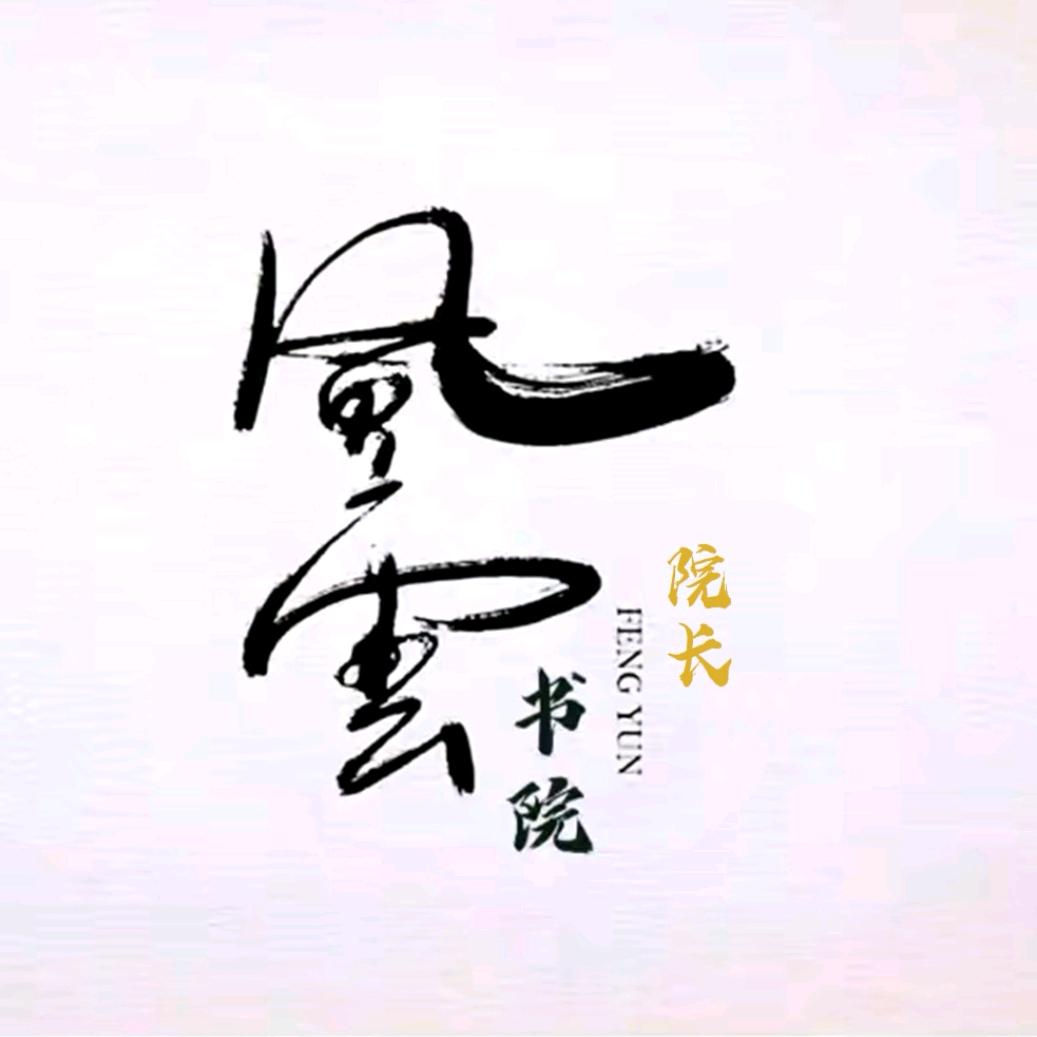 風雲
书院
FENG YUN
院长